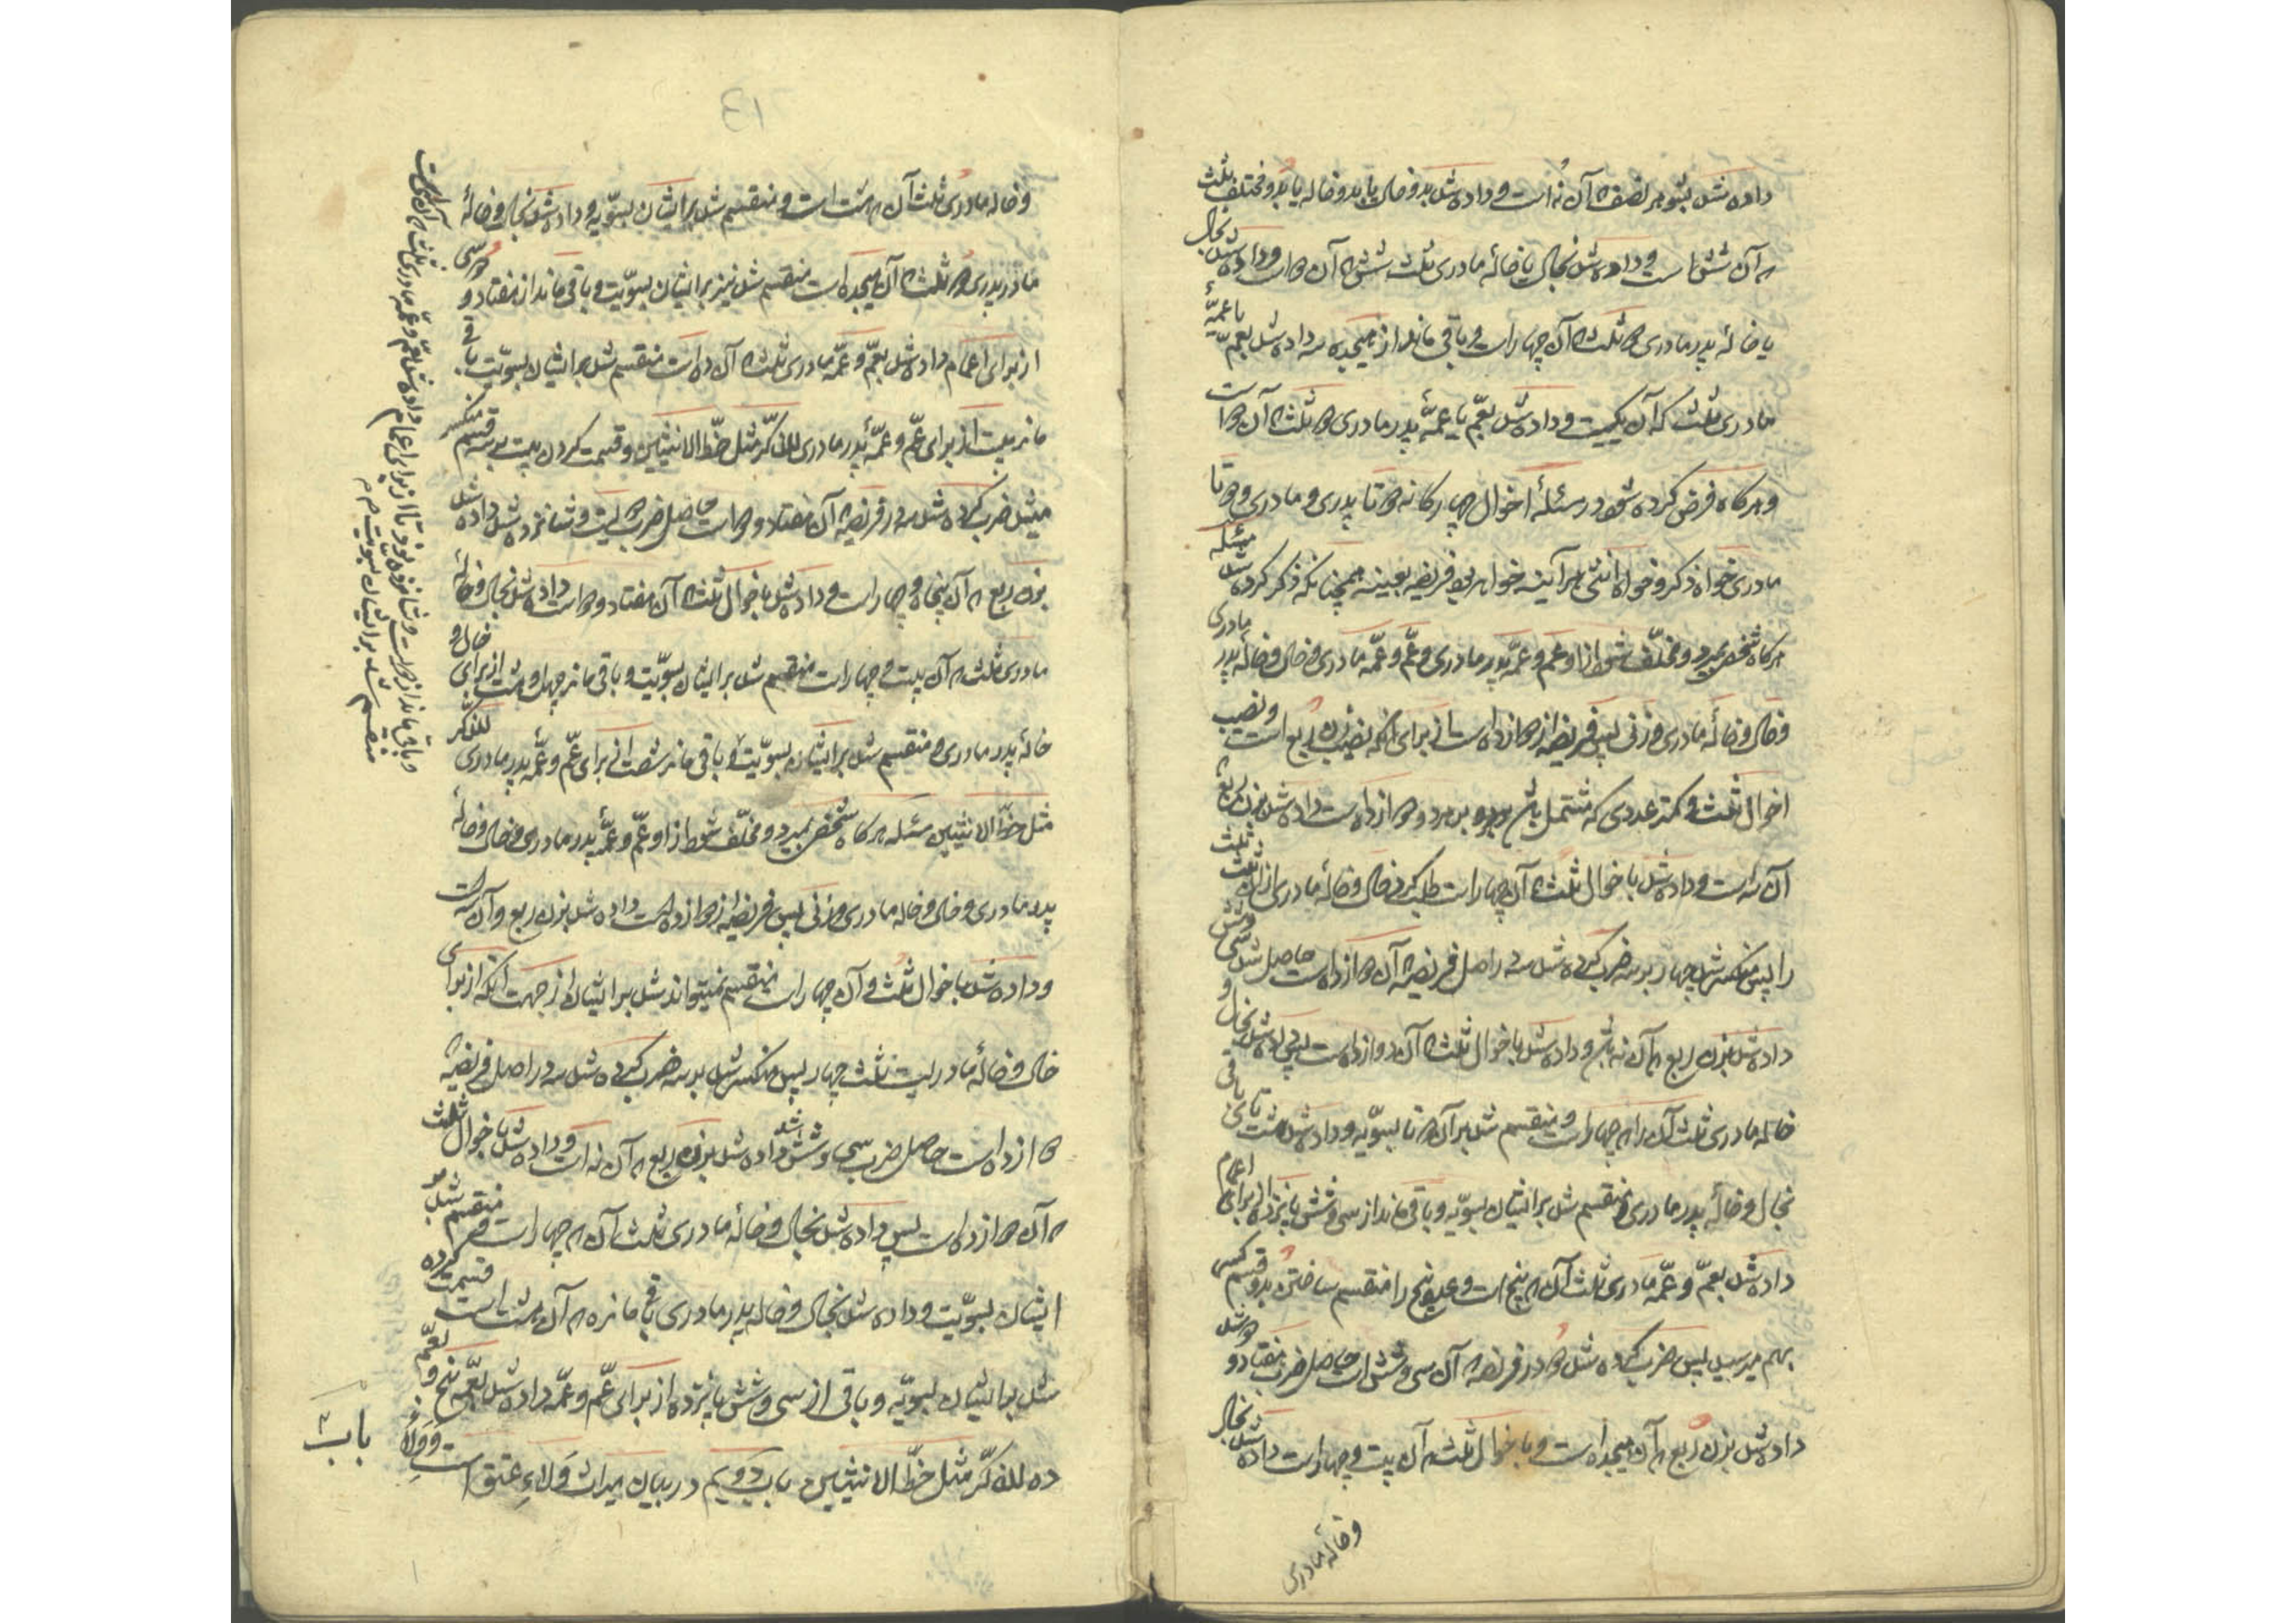 داده شد بشوهر نصف که آن نه است و داده شد بدو خال یا بدو خاله یا بدو مختلف ثلث
که آن شش است و داده شد بخال یا خالهٔ مادری ثلث شش که آن دو است و داده شد بخال
یا خالهٔ پدر مادری دو ثلث که آن چهار است و باقی ماند از هیجده سه داده شد بعم یا عمهٔ
مادری ثلث که آن یکیست و داده شد بعم یا عمهٔ پدر مادری دو ثلث که آن دو است
و هرکاه فرض کرده شود در مسئلهٔ اخوال چهارکانه دو تا پدری و مادری و دو تا
مادری خواه ذکر و خواه انثی هر آینه خواهد بود فریضه بعینه همچنانکه ذکر کرده شد مسئله
هرکاه شخصی بمیرد و مخلّف شود از او عم و عمهٔ پدر مادری و عمّ و عمّهٔ مادری و خال و خالهٔ پدر مادری
و خال و خالهٔ مادری و زنی پس فریضه از دوازده است از برای آنکه نصیب زن ربع است و نصیب
اخوال ثلث و کمتر عددی که مشتمل باشد بر هر دو دوازده است داده شد بزن ربع که
آن سه است و داده شد باخوال ثلث که آن چهار است طلب کردیم خال و خالهٔ مادری از آن ثلث ثلث
را پس منکسر شد چهار بر سه ضرب کرده شد سه در اصل فریضه که آن دوازده است حاصل شد سی و شش
داده شد بزن ربع که آن نه باشد و داده شد باخوال ثلث که آن دوازده است پس داده شد بخال و
خالهٔ مادری ثلث آن را که چهار است و منقسم شد بر آن دو تا بسویّه و داده شد هشت تای باقی
بخال و خالهٔ پدر مادری و منقسم شد بر ایشان بسویّه و باقی ماند از سی و شش پانزده از برای اعمام
داده شد بعمّ و عمّهٔ مادری ثلث آن که پنج است و عدد پنج را منقسم ساختن بدو قسم کسر
بهم میرسد پس ضرب کرده شد دو در فریضه که آن سی و شش است حاصل ضرب هفتاد و دو شد
داده شد بزن ربع که آن هیجده است و باخوال ثلث که آن بیست و چهار است داده شد بخال
و خالهٔ مادری
و خاله مادری ثلث آن که هشت است و منقسم شد بر ایشان بسویّه و داده شد بخال و خالهٔ
مادر پدری دو ثلث که آن هیجده است منقسم شد نیز بر ایشان بسویّت و باقی ماند از هفتاد و دو سی
از برای اعمام داده شد بعمّ و عمّهٔ مادری ثلث که آن ده است منقسم شد بر ایشان بسویّت باقی
ماند بیست از برای عمّ و عمّهٔ پدر مادری للذّکر مثل حظّ الانثیین و قسمت کردن بیست بر سه قسم منکسر
میشد ضرب کرده شد سه در فریضه که آن هفتاد و دو است حاصل ضرب دویست و شانزده شد داده شد
بزن ربع که آن پنجاه و چهار است و داده شد باخوال ثلث که آن هفتاد و دو است داده شد بخال و خالهٔ
مادری ثلث که آن بیست و چهار است منقسم شد بر ایشان بسویّت و باقی ماند چهل و هشت از برای خال و
خالهٔ پدر مادری و منقسم شد بر ایشان بسویّت و باقی ماند شصت از برای عمّ و عمّهٔ پدر مادری للذکر
مثل حظّ الانثیین مسئله هرکاه شخصی بمیرد و مخلّف شود از او عمّ و عمّهٔ پدر مادری و خال و خالهٔ
پدر مادری و خال و خاله مادری و زنی پس فریضه از دوازده است داده شد بزن ربع و آن سه است
و داده شد باخوال ثلث و آن چهار است منقسم نمیتواند شد بر ایشان از جهت آنکه از برای
خال و خالهٔ مادریست ثلث چهار پس منکسر شد بر سه ضرب کرده شد سه در اصل فریضه که
دوازده است حاصل ضرب سی و شش شد داده شد بزن ربع که آن نه است و داده شد باخوال ثلث
که آن دوازده است پس داده شد بخال و خالهٔ مادری ثلث آن که چهار است و منقسم شد بر
ایشان بسویّت و داده شد بخال و خاله پدر مادری باقی مانده که آن هشت است قسمت کرده
شد بر ایشان بسویّه و باقی از سی و شش پانزده از برای عمّ و عمّه داده شد بعمّه پنج و بعمّ
ده للذکر مثل حظّ الانثیین باب دویم در بیان میراث وَلاءِ عتق است و وَلاءِ
باب ۲
و باقی ماند از دویست و شانزده نود تا از برای اعمام داده شد بعمّ و عمّهٔ مادری ثلث که آن سی است
منقسم شد بر ایشان بسویت